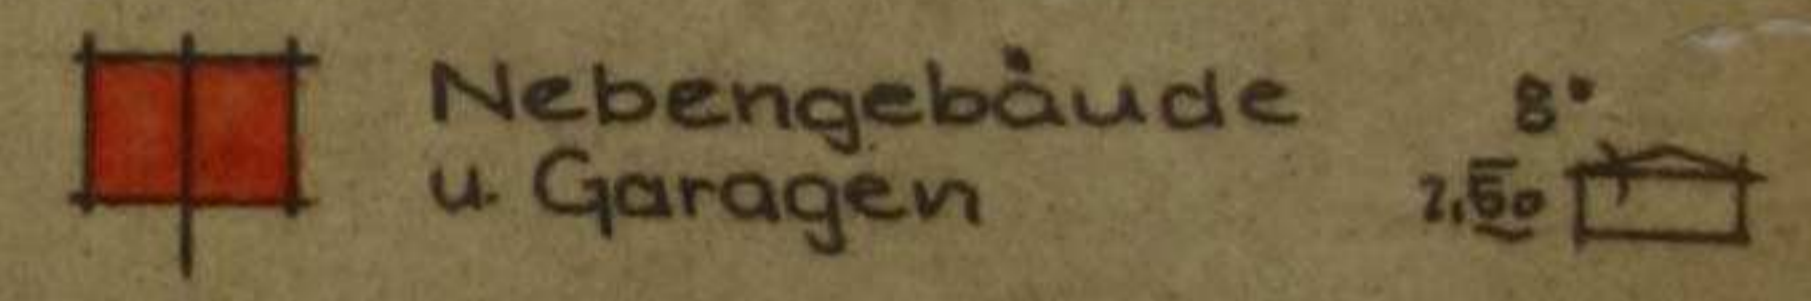 Nebengebäude
u. Garagen
8°
2.50